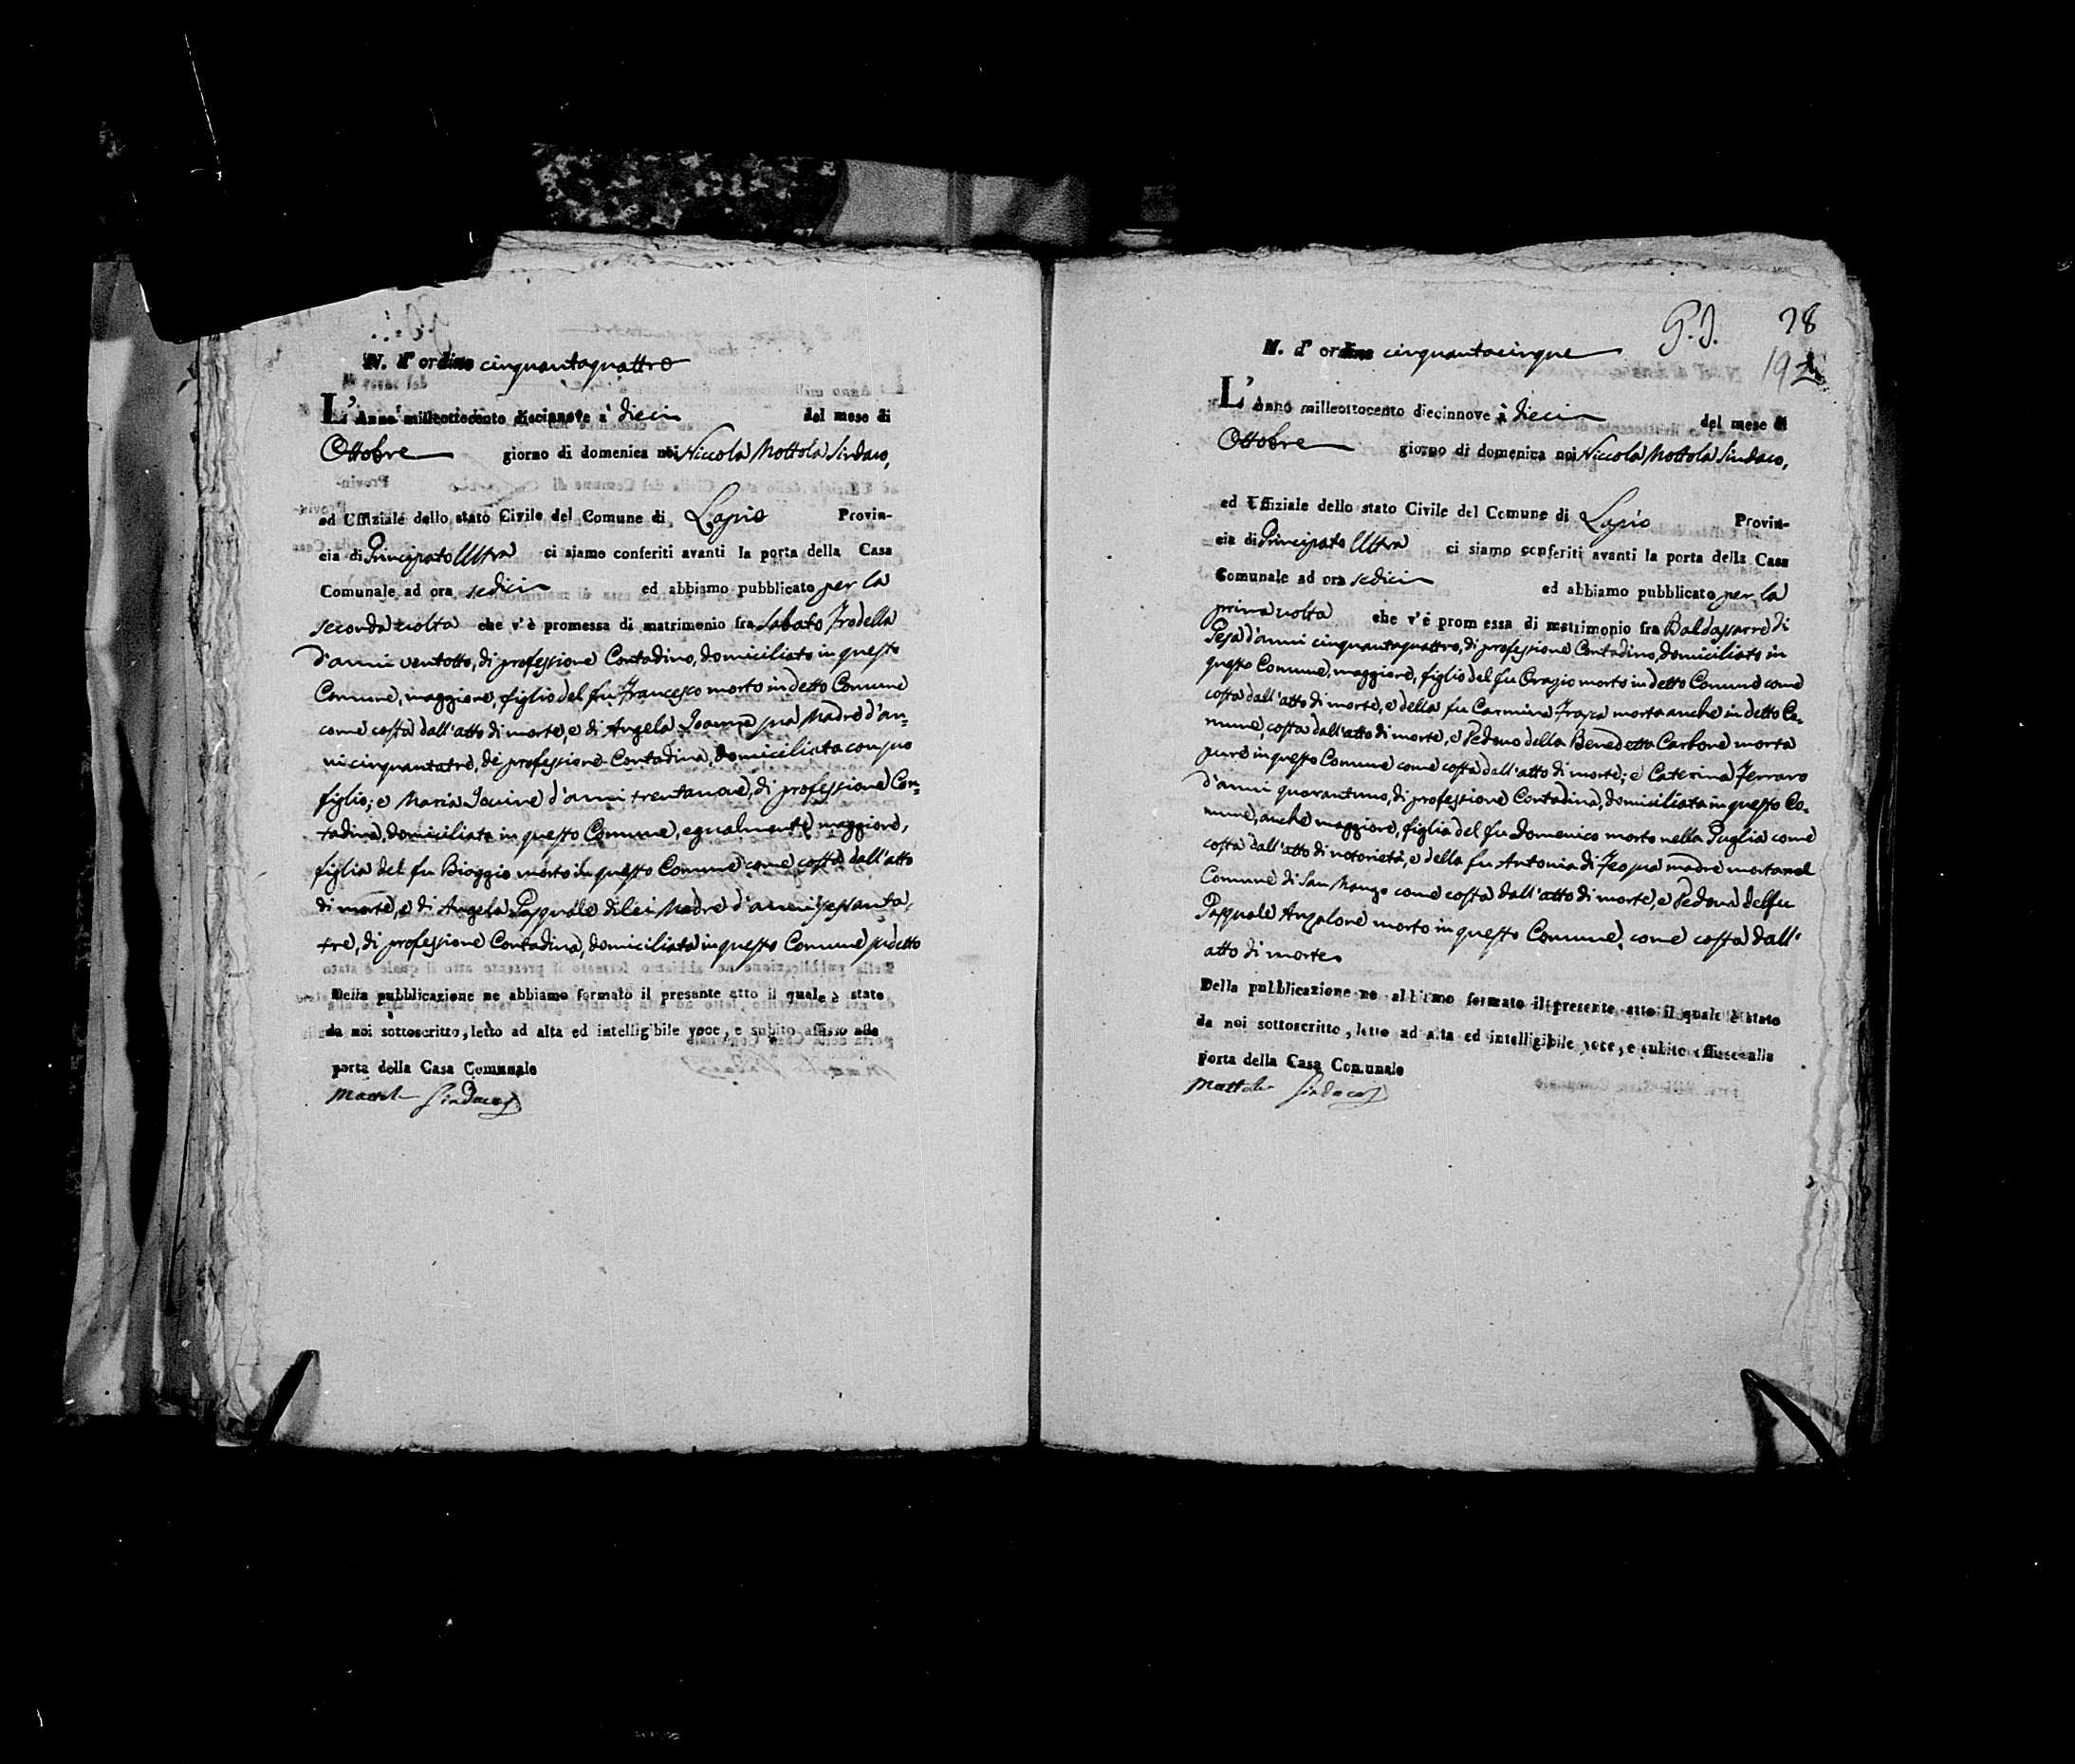 N. d'ordine cinquantaquattro
L'Anno milleottocento diecinnove a dieci del mese di
Ottobre giorno di domenica noi Niccola Mottola Sindaco,
ed Uffiziale dello stato Civile del Comune di Lapio Provin-
cia di Principato Ultra ci siamo conferiti avanti la porta della Casa
Comunale ad ora sedici ed abbiamo pubblicato per la
seconda volta che v'è promessa di matrimonio fra Sabato Trodella
d'anni ventotto, di professione Contadino, domiciliato in questo
Comune, maggiore, figlio del fu Francesco morto in detto Comune
come costa dall'atto di morte, e di Angela sua Madre d'an-
ni cinquantatre, di professione Contadina, domiciliata con suo
figlio; e Maria Iovine d'anni trentanove, di professione Con-
tadina, domiciliata in questo Comune, egualmente maggiore,
figlia del fu Biaggio morto in questo Comune come costa dall'atto
di morte, e di Angela Pasquale di lei Madre d'anni sessanta-
tre, di professione Contadina, domiciliata in questo Comune sudetto
Della pubblicazione ne abbiamo formato il presente atto il quale è stato
da noi sottoscritto, letto ad alta ed intelligibile voce, e subito affisso alla
porta della Casa Comunale
Mottola Sindaco
G.I. 28
192
N. d'ordine cinquantacinque
L'Anno milleottocento diecinnove à dieci del mese di
Ottobre giorno di domenica noi Niccola Mottola Sindaco,
ed Uffiziale dello stato Civile del Comune di Lapio Provin-
cia di Principato Ultra ci siamo conferiti avanti la porta della Casa
Comunale ad ora sedici ed abbiamo pubblicato per la
prima volta che v'è promessa di matrimonio fra Baldassarre di
Pesa d'anni cinquantaquattro, di professione Contadino, domiciliato in
questo Comune, maggiore, figlio del fu Orazio morto in detto Comune come
costa dall'atto di morte, e della fu Carmina morta anche in detto Co-
mune, costa dall'atto di morte, e Vedovo della Benedetta Carbone morta
pure in questo Comune come costa dall'atto di morte; e Caterina Ferraro
d'anni quarantuno, di professione Contadina, domiciliata in questo Co-
mune, anche maggiore, figlia del fu Domenico morto nella Puglia come
costa dall'atto di notorietà, e della fu Antonia di Feo sua madre morta nel
Comune di San Mango come costa dall'atto di morte, e Vedova del fu
Pasquale Anzalone morto in questo Comune, come costa dall'
atto di morte.
Della pubblicazione ne abbiamo formato il presente atto il quale è stato
da noi sottoscritto, letto ad alta ed intelligibile voce, e subito affisso alla
porta della Casa Comunale
Mottola Sindaco